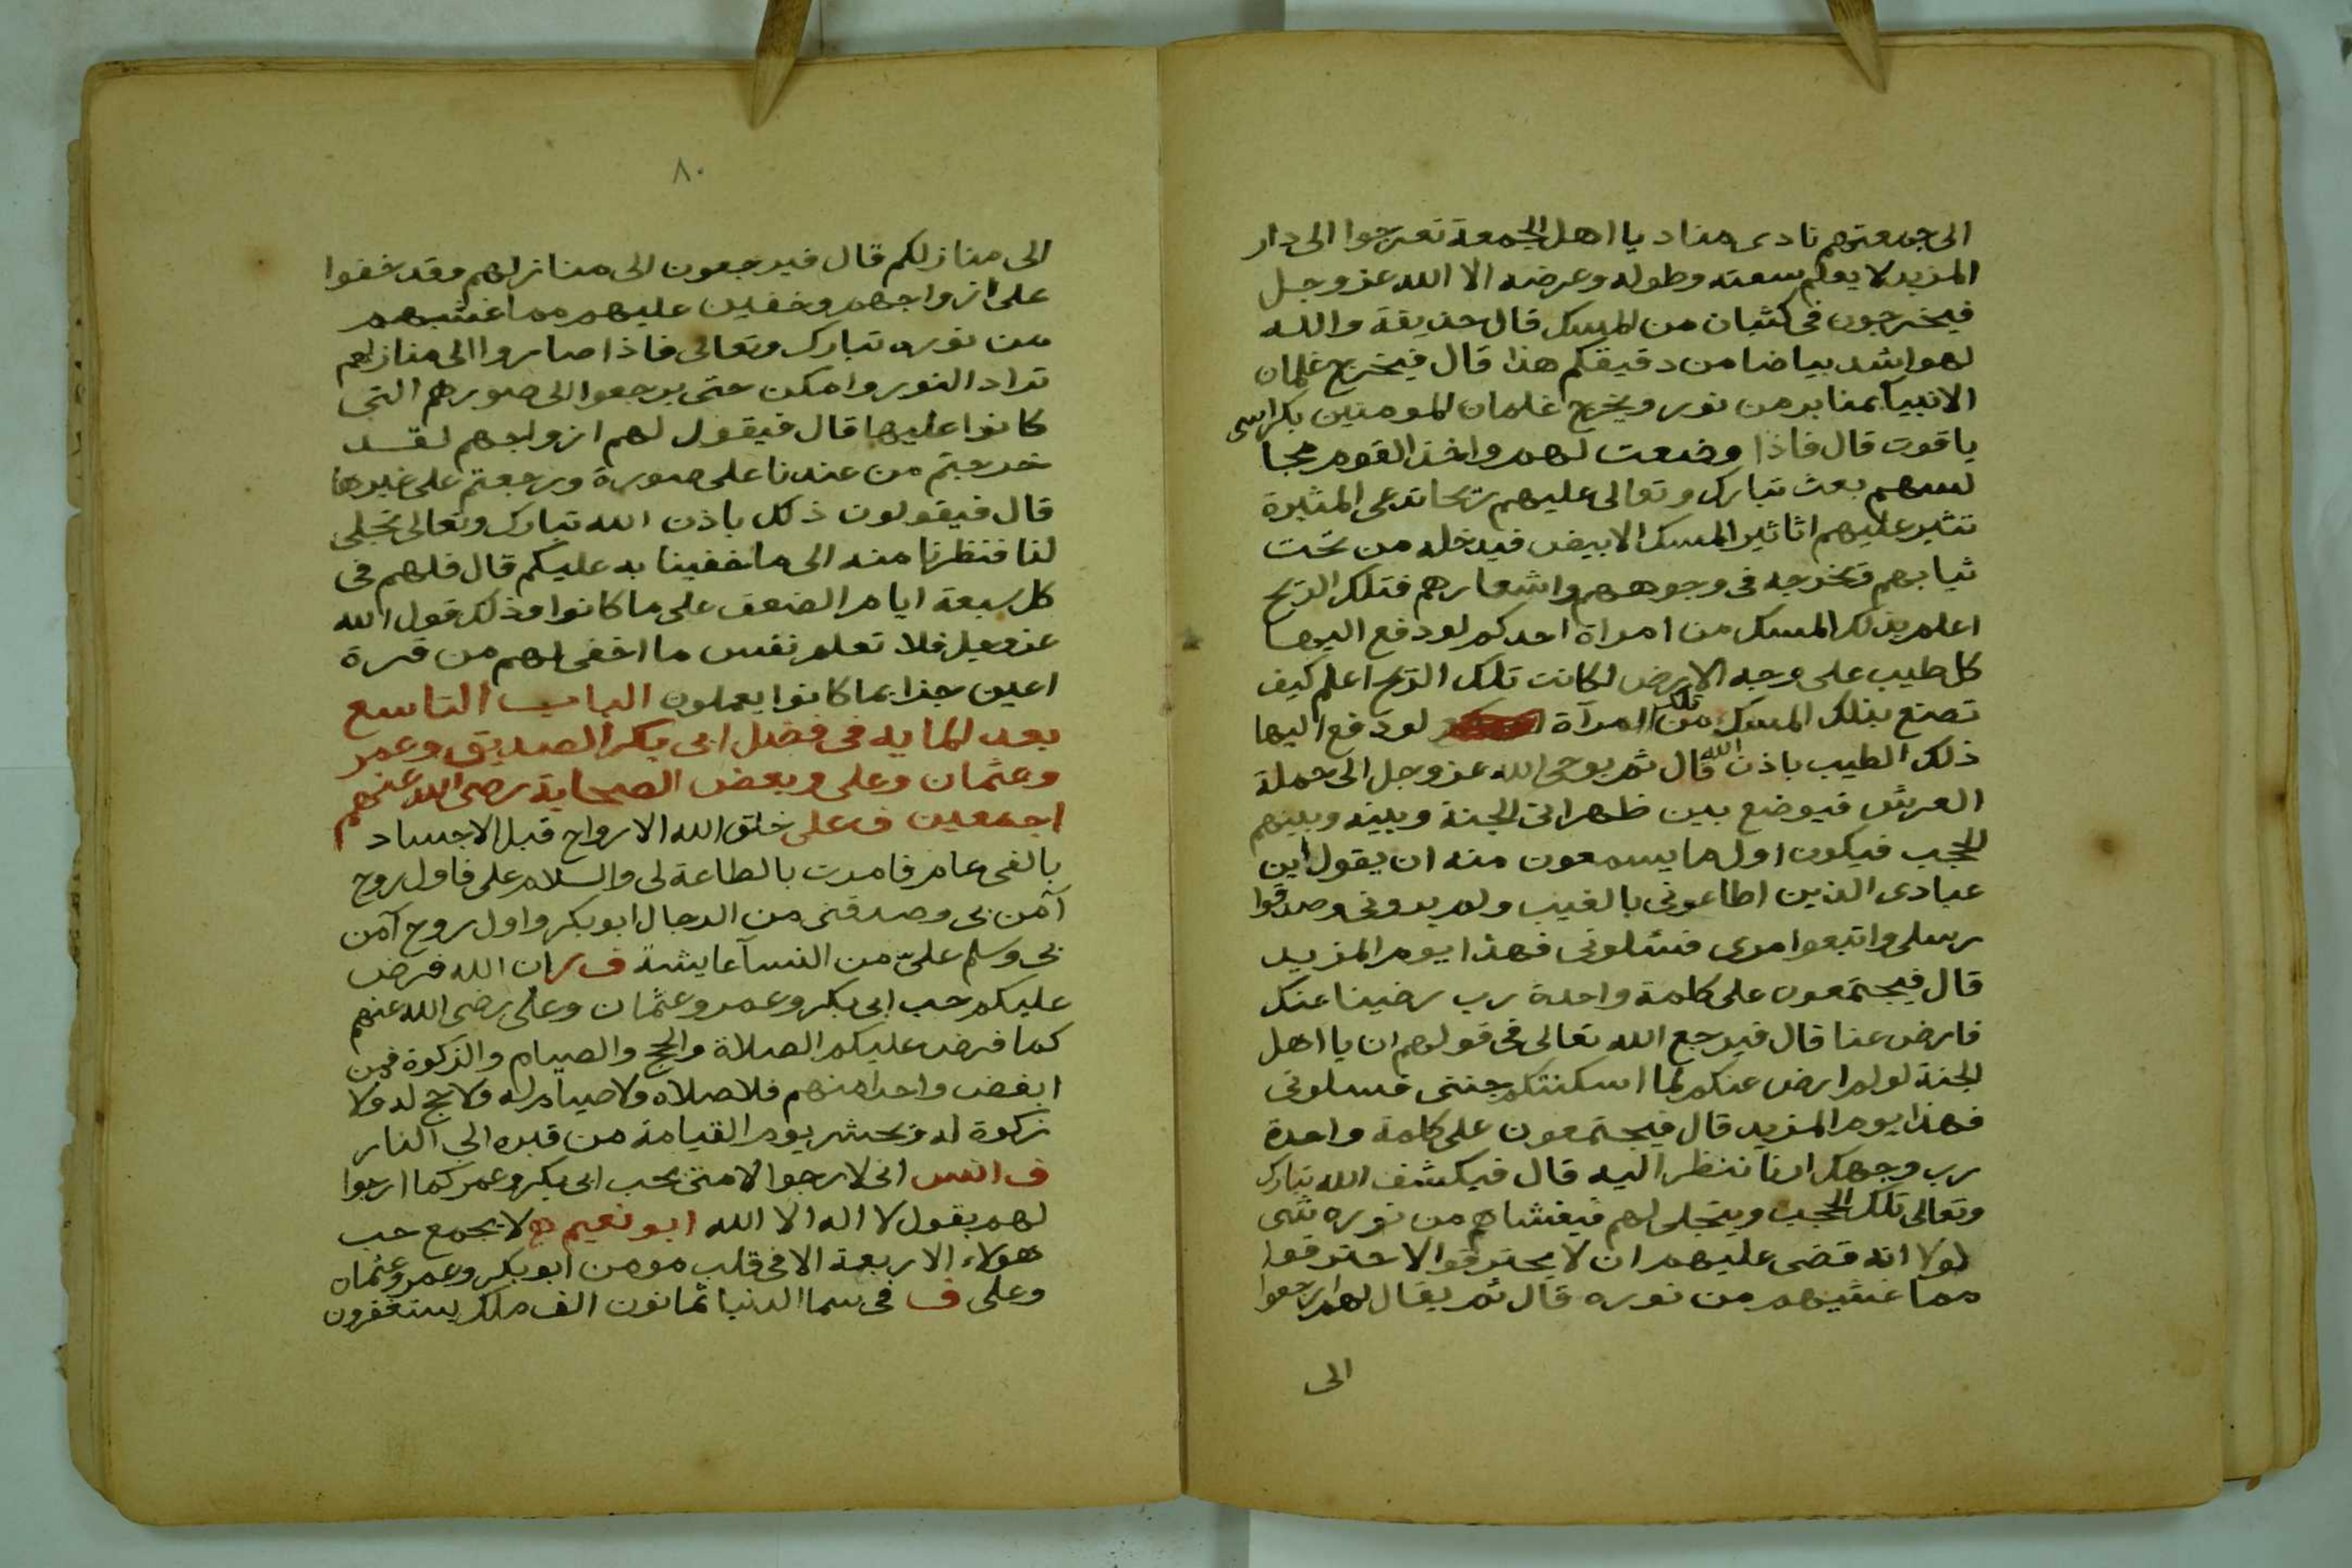 الى جمعتهم نادى مناد يا اهل الجمعة تعرجوا الى دار
المزيد لا يعلم سعته وطوله وعرضه الا الله عز وجل
فيخرجون فى كثبان من المسك قال حذيفة والله
لهو اشد بياضا من دقيقكم هذا قال فيخرج غلمان
الانبيآ بمنابر من نور ويخرج غلمان المومنين بكراسى
ياقوت قال فاذا وضعت لهم واخذ القوم مجا
لسهم بعث تبارك وتعالى عليهم ريحا تدعى المثيرة
تثير عليهم اثاثير المسك الابيض فيدخله من تحت
ثيابهم وتخرجه فى وجوههم واشعارهم فتلك الريح
اعلم بذلك المسك من امراة احدكم لو دفع اليها
كل طيب على وجه الارض لكانت تلك الريح اعلم كيف
تصنع بذلك المسك من تلك المرآة لو دفع اليها
ذلك الطيب باذن الله قال ثم يوحى الله عز وجل الى حملة
العرش فيوضع بين ظهرانى الجنة وبينه وبينهم
الحجب فيكون اول ما يسمعون منه ان يقول اين
عبادى الذين اطاعونى بالغيب ولم يرونى وصدقوا
رسلى واتبعوا امرى فسئلونى فهذا يوم المزيد
قال فيجتمعون على كلمة واحدة رب رضينا عنك
فارض عنا قال فيرجع الله تعالى فى قولهم ان يا اهل
الجنة لو لم ارض عنكم لما اسكنتكم جنتى فسلونى
فهذا يوم المزيد قال فيجتمعون على كلمة واحدة
رب وجهك ارنا ننظر اليه قال فيكشف الله تبارك
وتعالى تلك الحجب ويتجلى لهم فيغشاهم من نوره شى
لولا انه قضى عليهم ان لا يحترقوا لاحترقوا
مما غشيهم من نوره قال ثم يقال لهم ارجعوا
الى
٨٠
الى منازلكم قال فيرجعون الى منازلهم وقد خفوا
على ازواجهم وخفين عليهم مما غشيهم
من نوره تبارك وتعالى فاذا صاروا الى منازلهم
تراد النور وامكن حتى يرجعوا الى صورهم التى
كانوا عليها قال فيقول لهم ازواجهم لقد
خرجتم من عندنا على صورة ورجعتم على غيرها
قال فيقولون ذلك باذن الله تبارك وتعالى تجلى
لنا فنظرنا منه الى ما خفينا به عليكم قال فلهم فى
كل سبعة ايام الضعف على ما كانوا وذلك قول الله
عز وجل فلا تعلم نفس ما اخفى لهم من قرة
اعين جزا بما كانوا يعملون الباب التاسع
بعد المايه فى فضل ابى بكر الصديق وعمر
وعثمان وعلى وبعض الصحابة رضى الله عنهم
اجمعين ف على خلق الله الارواح قبل الاجساد
بالفى عام فامرت بالطاعة لى والسلام على فاول روح
آمن بى وصدقنى من الرجال ابو بكر واول روح آمن
بى وسلم علىّ من النسآ عايشة ف ر ان الله فرض
عليكم حب ابى بكر وعمر وعثمان وعلى رضى الله عنهم
كما فرض عليكم الصلاة والحج والصيام والزكوة فمن
ابغض واحدا منهم فلا صلاه ولا صيام له ولا حج له ولا
زكوة له ويحشر يوم القيامة من قبره الى النار
ف انس انى لارجوا لامتى بحب ابى بكر وعمر كما ارجوا
لهم بقول لا اله الا الله ابو نعيم ه لا يجمع حب
هولاء الاربعة الا فى قلب مومن ابو بكر وعمر وعثمان
وعلى ف فى سما الدنيا ثمانون الف ملك يستغفرون